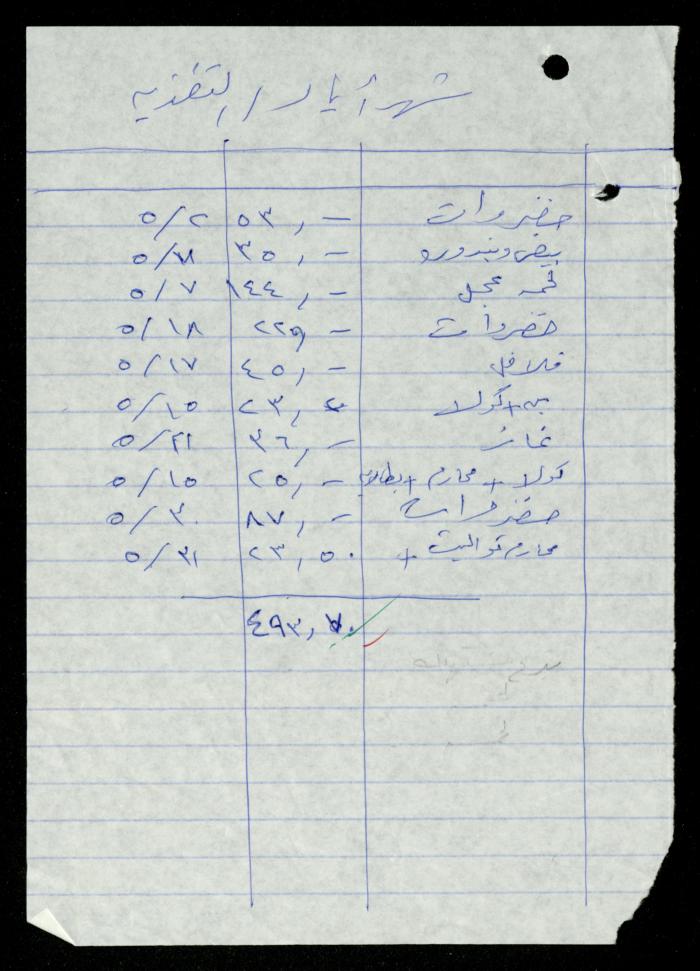 شهر أيار / التغذيه
خضروات ٥٣,- ٥/٢
بيض وبندوره ٣٥,-
لحمه عجل ١٤٤,- ٥/٧
خضروات ٢٢,- ٥/١٨
فلافل ٤٥,- ٥/١٧
بن + كولا ٢٣,٢ ٥/١٥
غاز ٣٦,- ٥/٢١
كولا + محارم + ٢٥,- ٥/١٥
خضروات ٨٧,- ٥/٣٠
محارم تواليت + ٢٣,٥٠ ٥/٣١
٤٩٣,٧٠